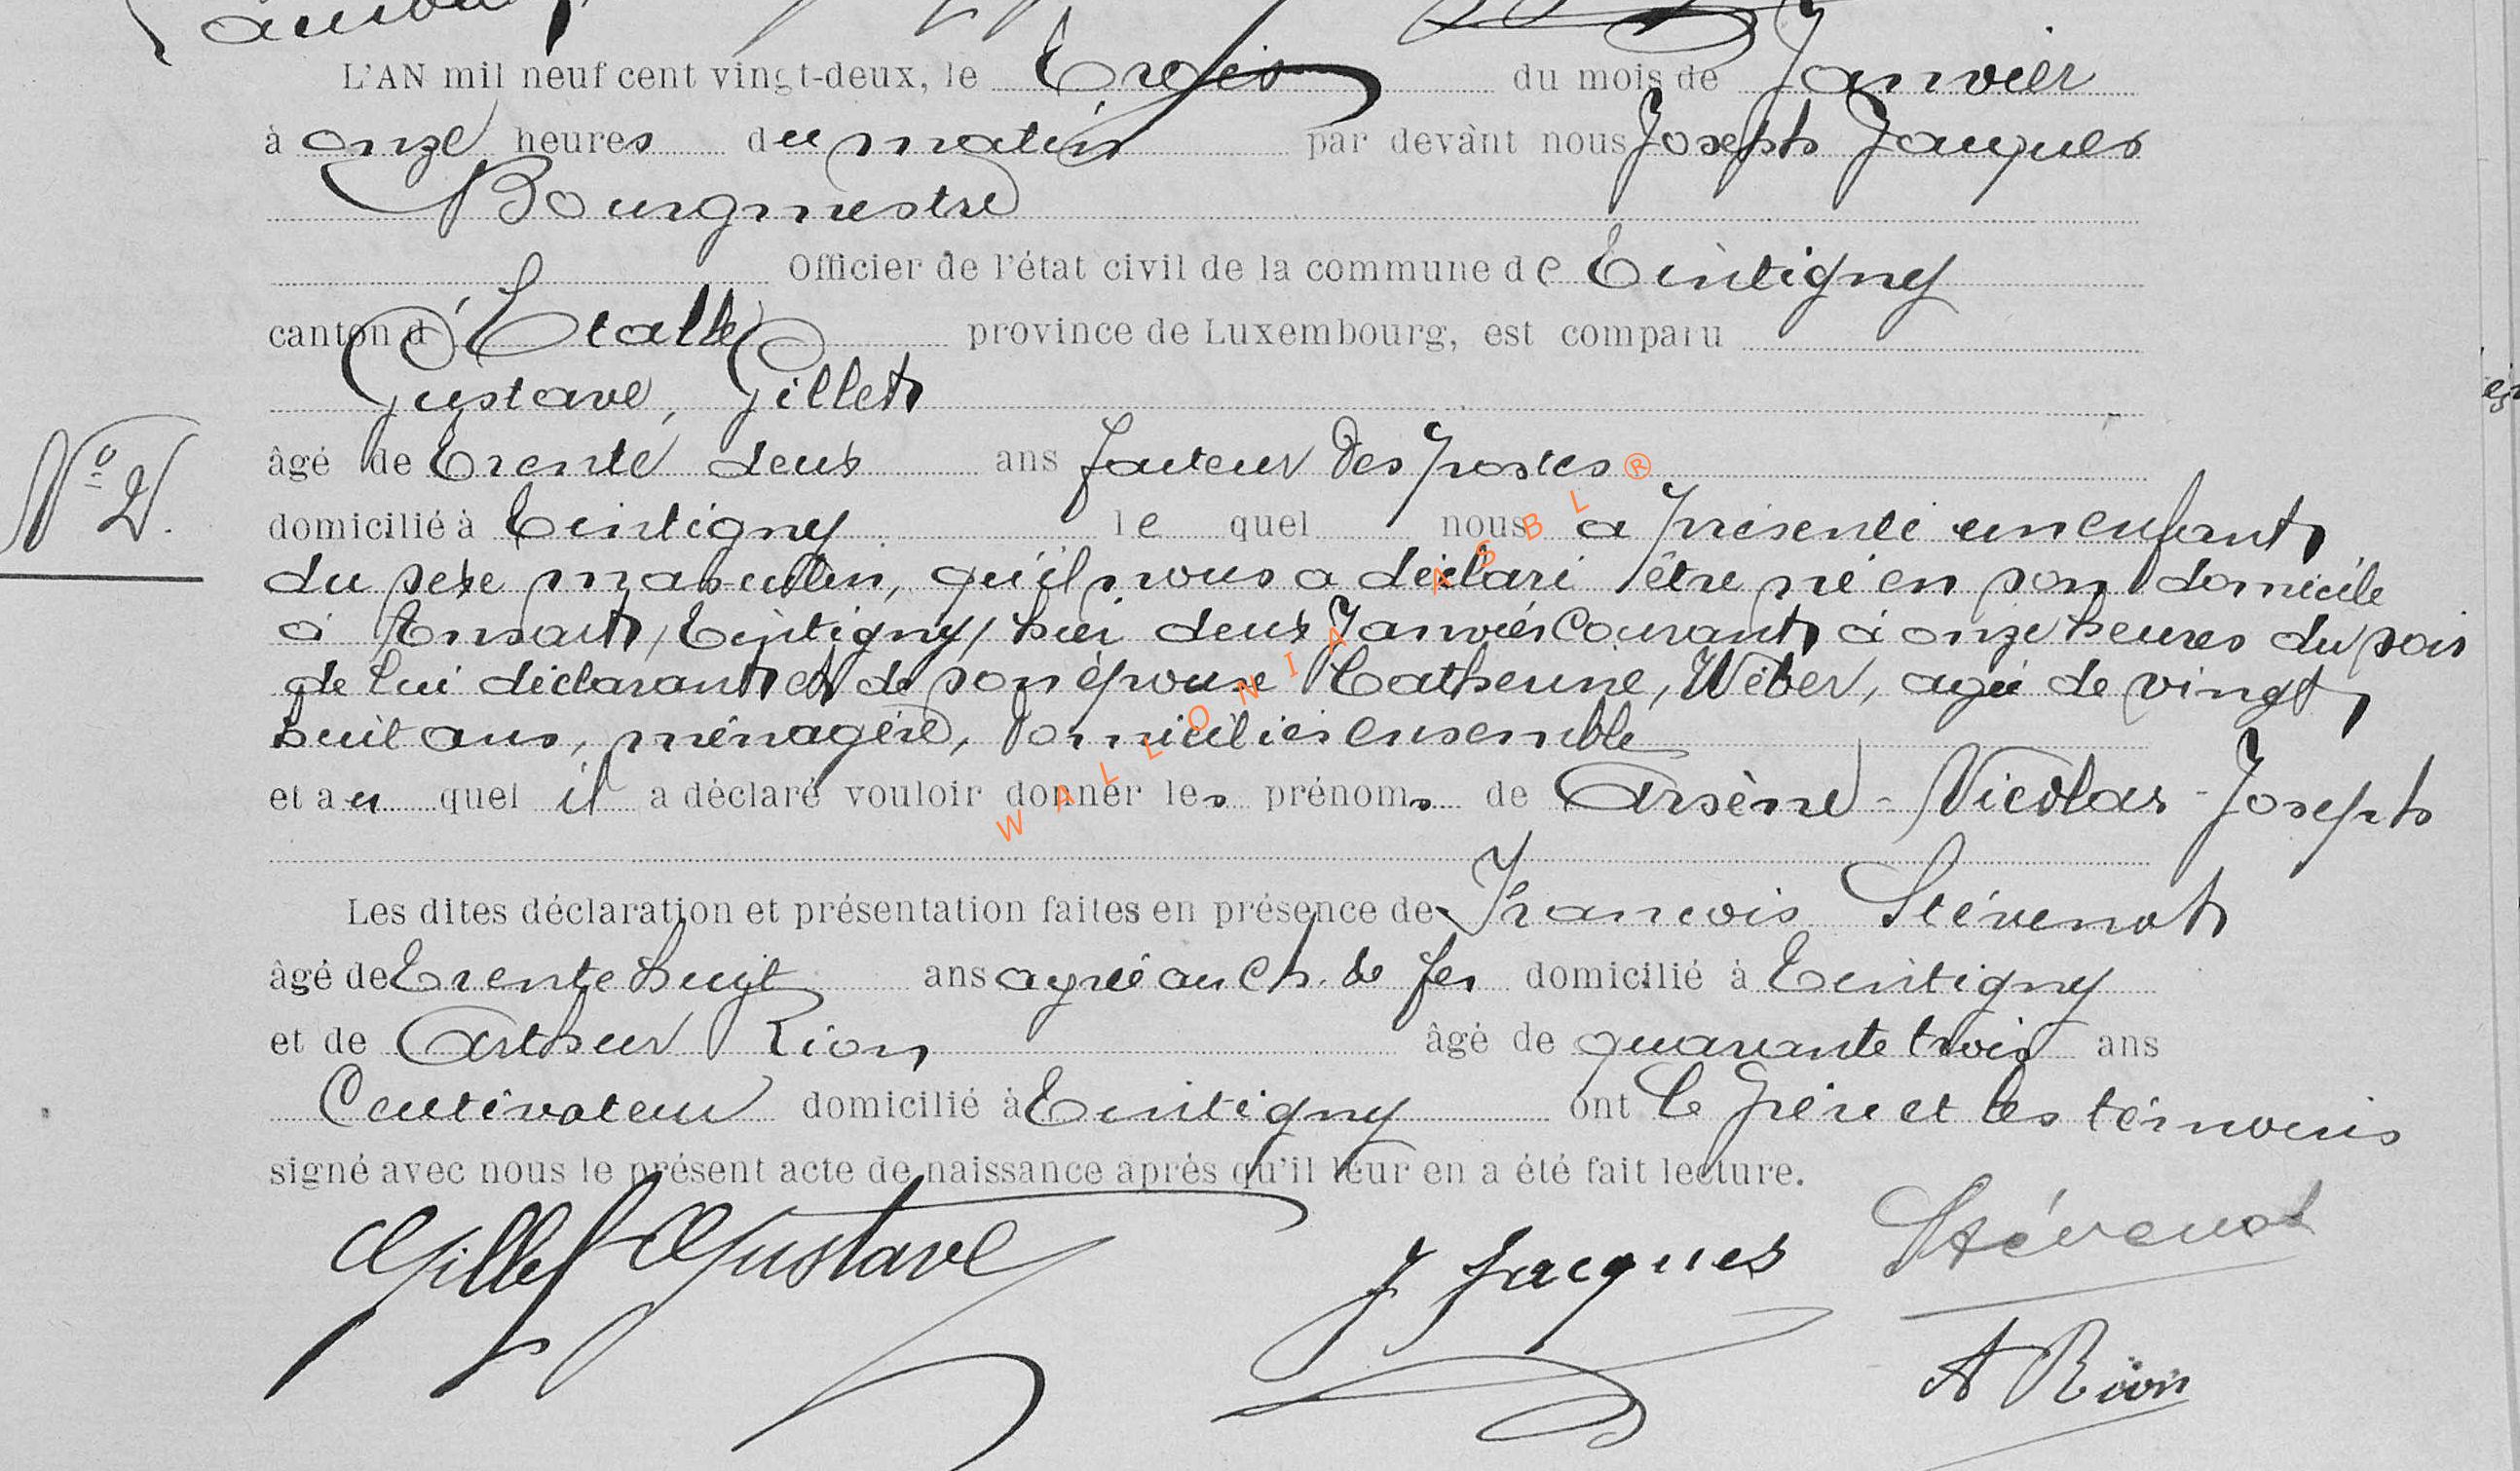 L'AN mil neuf cent vingt-deux, le Trois du mois de Janvier
à onze heures du matin par devant nous Joseph Jacques
Bourgmestre
Officier de l'état civil de la commune de Tintigny
canton d'Etalle province de Luxembourg, est comparu
Gustave, Gillet
âgé de trente deux ans facteur des postes
N° 2.
domicilié à Tintigny le quel nous a présenté un enfant
du sexe masculin, qu'il nous a déclaré être né en son domicile
à Ansart, (Tintigny) hier deux Janvier courant à onze heures du soir
de lui déclarant et de son épouse Catherine, Weber, agée de vingt
huit ans, ménagère, domiciliés ensemble
et au quel il a déclaré vouloir donner les prénoms de Arsène-Nicolas-Joseph
Les dites déclaration et présentation faites en présence de François Stévenot
âgé de trente huit ans agréé au ch. de fer domicilié à Tintigny
et de Arthur Rion âgé de quarante trois ans
Cultivateur domicilié à Tintigny ont le père et les témoins
signé avec nous le présent acte de naissance après qu'il leur en a été fait lecture.
Gillet Gustave J Jacques Stévenot
A Rion
WALLONIA ASBL ®